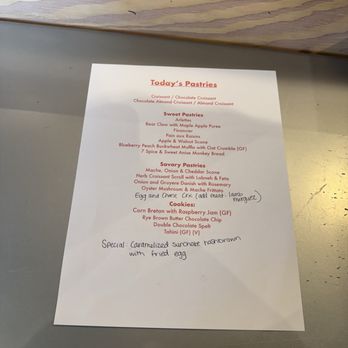 Today's Pastries
Croissant / Chocolate Croissant
Chocolate Almond Croissant / Almond Croissant
Sweet Pastries
Arlettes
Bear Claw with Maple Apple Puree
Financier
Pain aux Raisins
Apple & Walnut Scone
Blueberry Peach Buckwheat Muffin with Oat Crumble (GF)
7 Spice & Sweet Anise Monkey Bread
Savory Pastries
Mache, Onion & Cheddar Scone
Herb Croissant Scroll with Labneh & Feta
Onion and Gruyere Danish with Rosemary
Oyster Mushroom & Mache Frittata
Egg and Cheese Crx (add
Cookies:
Corn Bretan with Raspberry Jam (GF)
Rye Brown Butter Chocolate Chip
Double Chocolate Spelt
Tahini (GF) (V)
Special: Caramelized sunchoke hashbrown
with fried egg